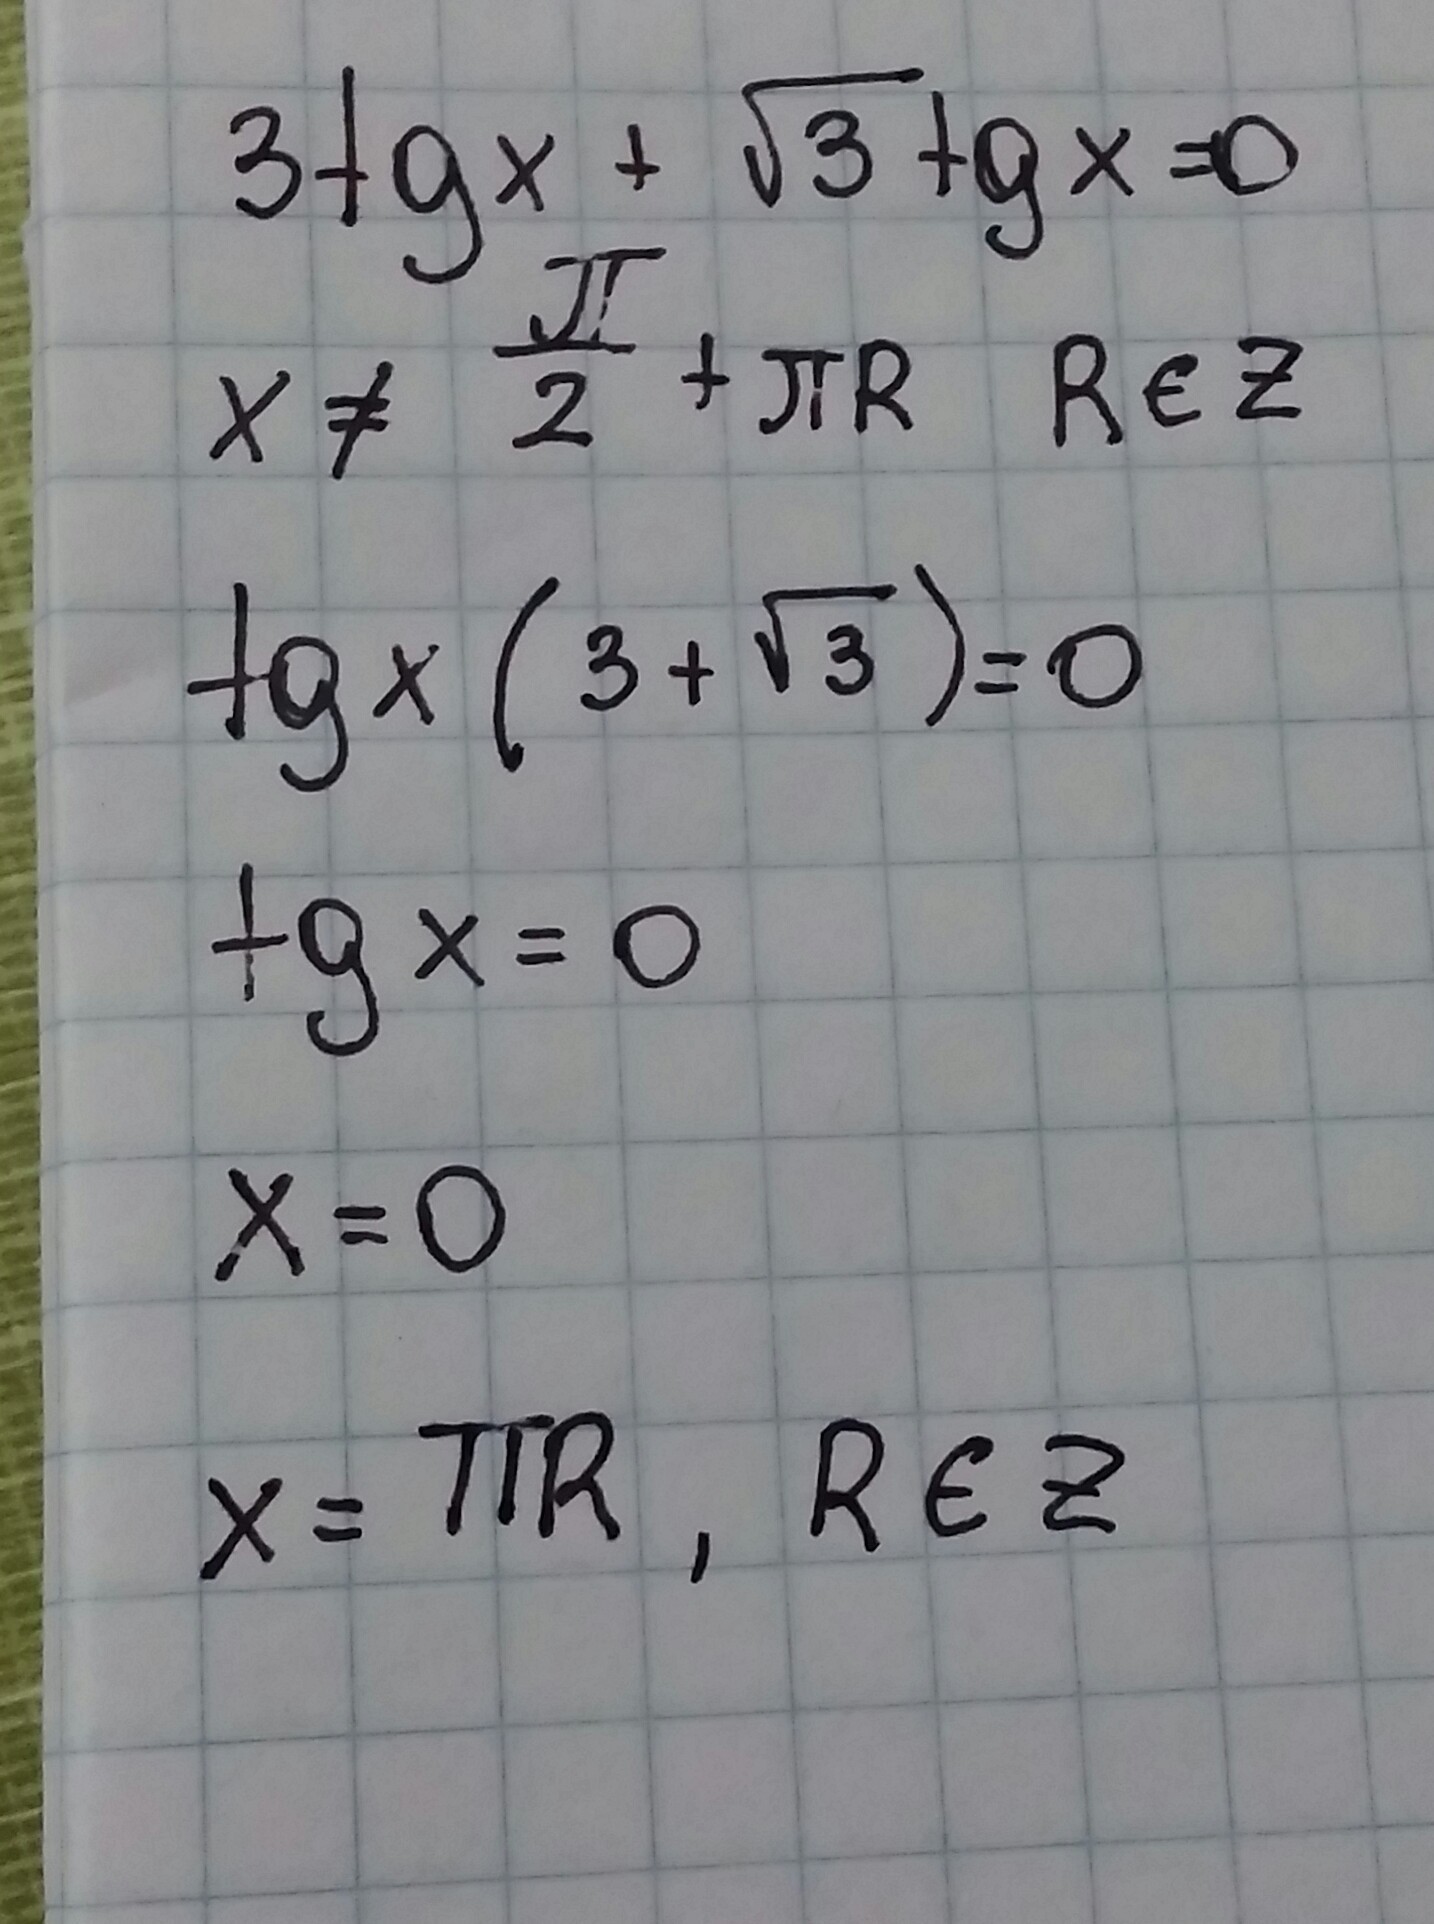 3tgx + √3 tgx =0
x ≠ π/2 + πR R∈Z
tgx (3+√3)=0
tgx = 0
x=0
x= πR, R∈Z